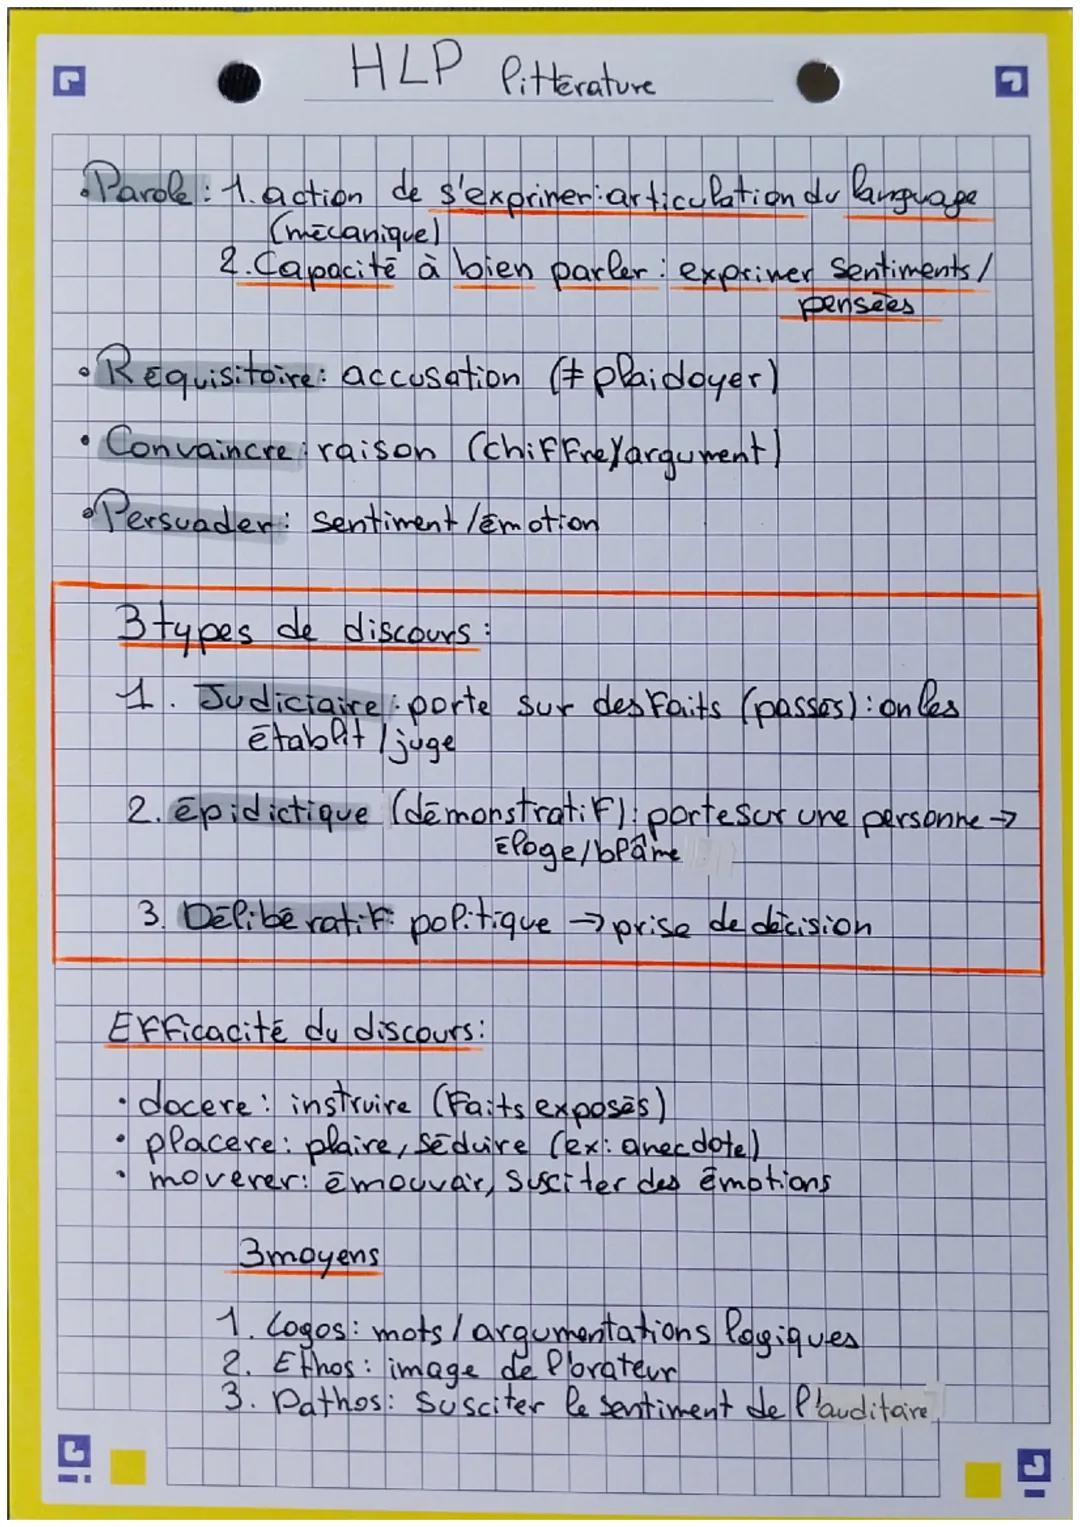 HLP littérature
• Parole : 1. action de s'exprimer : articulation du language
(mécanique)
2. Capacité à bien parler : exprimer sentiments /
pensées
• Réquisitoire : accusation (≠ plaidoyer)
• Convaincre : raison (chiffre/argument)
• Persuader : sentiment / émotion
3 types de discours :
1. Judiciaire : porte sur des faits (passés) : on les
établit / juge
2. épidictique (démonstratif) : porte sur une personne →
Éloge/blâme
3. Délibératif : politique → prise de décision
Efficacité du discours :
• docere : instruire (Faits exposés)
• placere : plaire, séduire (ex : anecdote)
• moverer : émouvoir, susciter des émotions
3 moyens
1. Logos : mots / argumentations logiques
2. Ethos : image de l'orateur
3. Pathos : Susciter le sentiment de l'auditaire